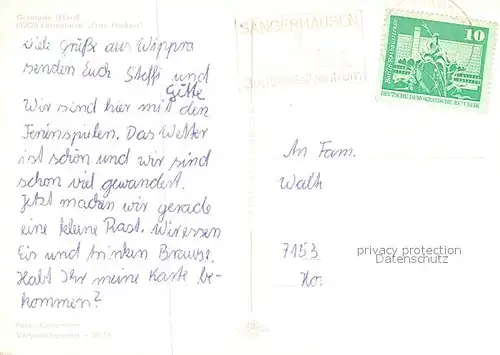 Gernrode (Harz)
FDGB-Ferienheim "Fritz Heckert"
Viele Grüße aus Wippra
senden Euch Steffi und
Gitte
Wir sind hier mit den
Ferienspielen. Das Wetter
ist schön und wir sind
schon viel gewandert.
Jetzt machen wir gerade
eine kleine Rast. Wir essen
Eis und trinken Brause.
Habt Ihr meine Karte be-
kommen?
SANGERHAUSEN
10
DEUTSCHE DEMOKRATISCHE REPUBLIK
An Fam.
Walh
7153
Ho.
privacy protection
Datenschutz